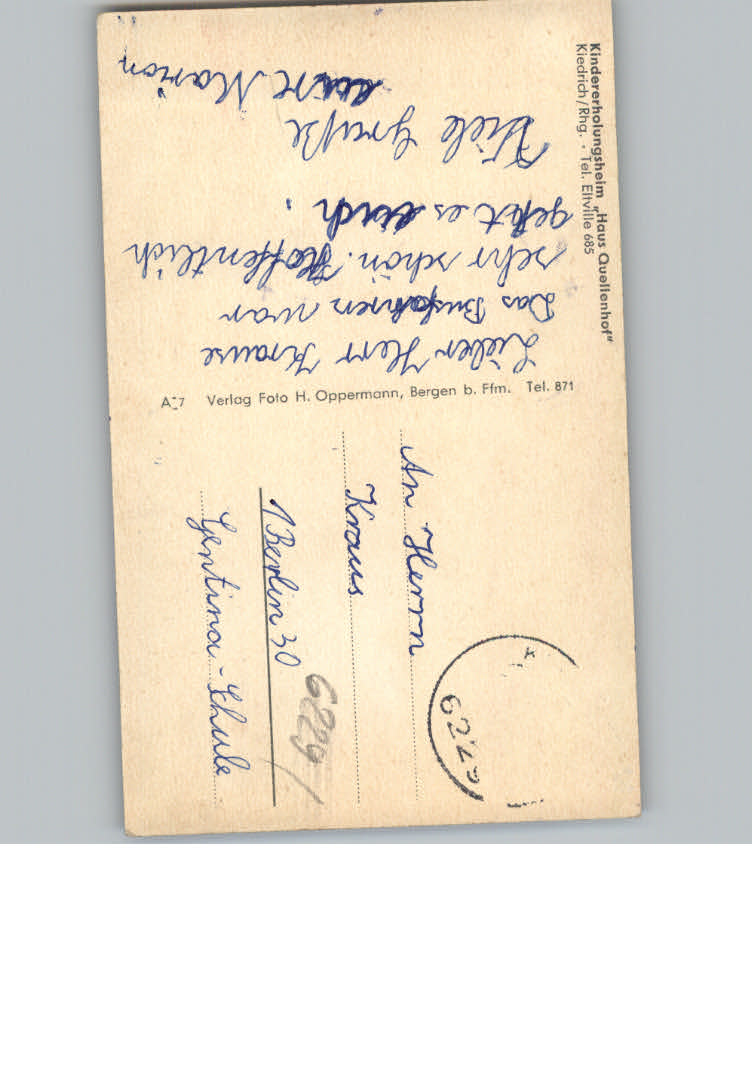 Kindererholungsheim „Haus Quellenhof"
Kiedrich/Rhg. · Tel. Eltville 685
Lieber Herr Krause
Das Busfahren war
sehr schön. Hoffentlich
geht es euch.
Viele Grüße
eure Marion
A-7 Verlag Foto H. Oppermann, Bergen b. Ffm. Tel. 871
An Herrn
Kraus
1 Berlin 30
Gentina-Schule
6229
6229